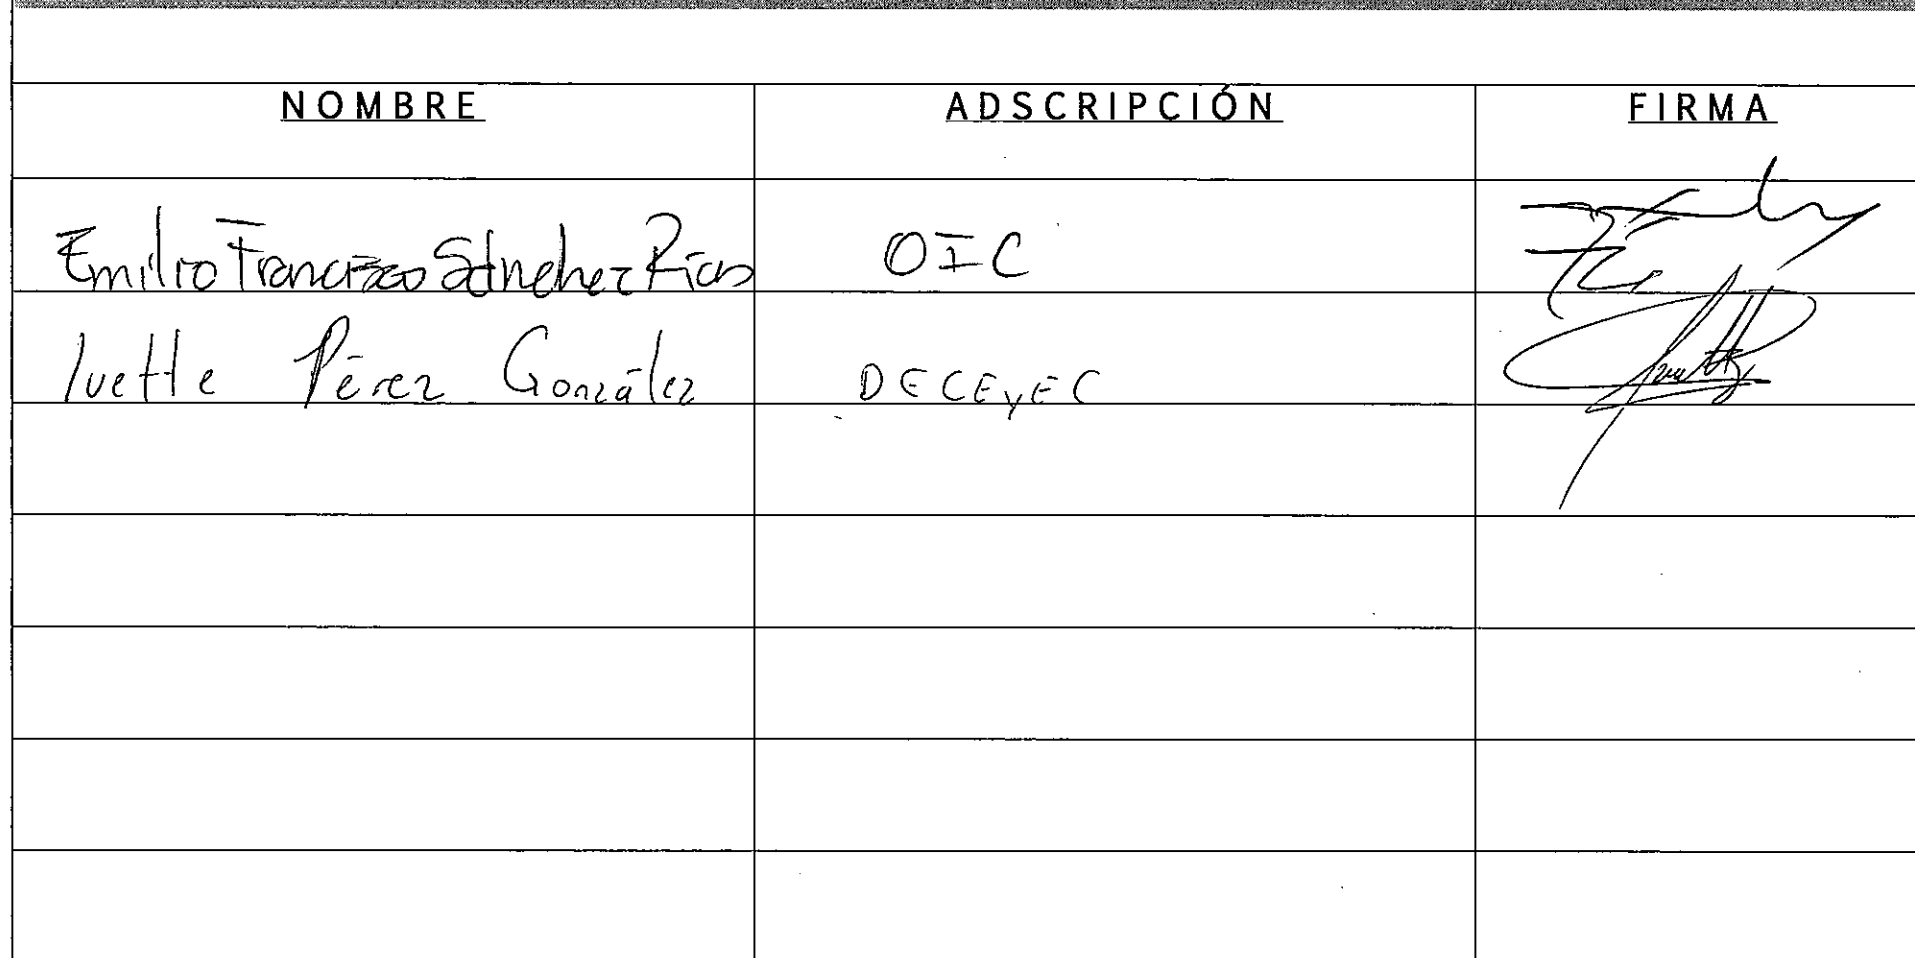 NOMBRE ADSCRIPCIÓN FIRMA
Emilio Francisco Sánchez Ríos OIC
Ivette Pérez González DECEyEC